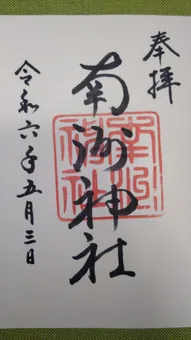 奉拝
南洲神社
令和六年五月三日